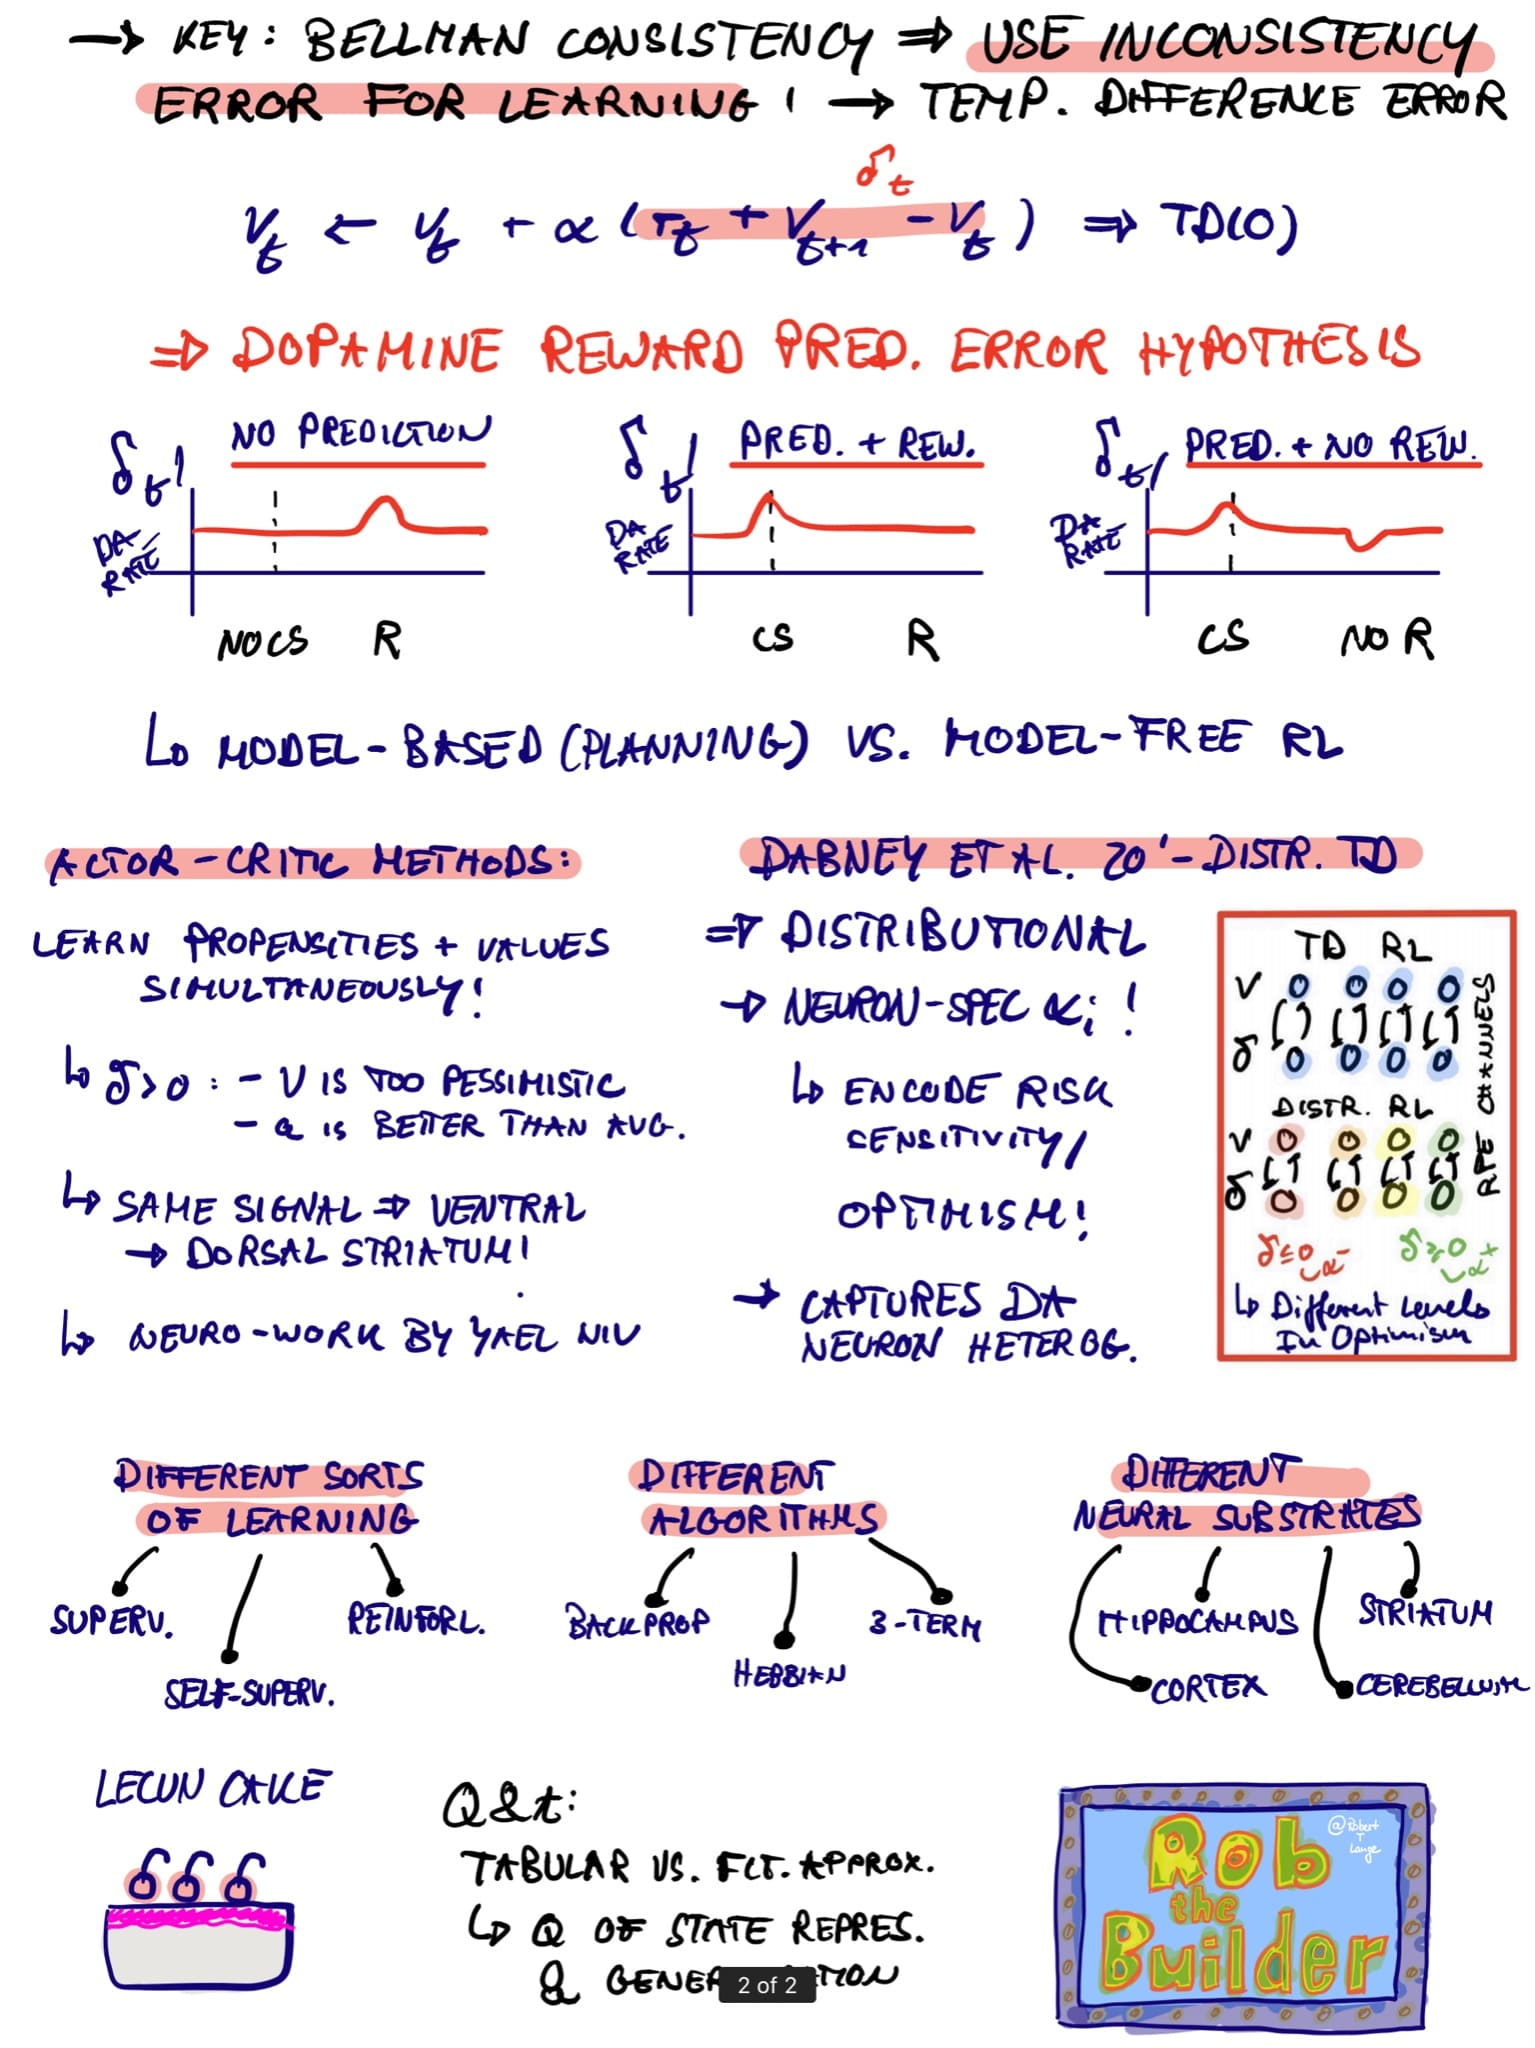 → KEY: BELLMAN CONSISTENCY ⇒ USE INCONSISTENCY
ERROR FOR LEARNING ! → TEMP. DIFFERENCE ERROR
δt
Vt ← Vt + α (rt + Vt+1 - Vt) ⇒ TD(0)
⇒ DOPAMINE REWARD PRED. ERROR HYPOTHESIS
δt/ NO PREDICTION
DA-RATE
NO CS R
δt/ PRED. + REW.
DA RATE
CS R
δt/ PRED. + NO REW.
DA RATE
CS NO R
↳ MODEL-BASED (PLANNING) VS. MODEL-FREE RL
ACTOR-CRITIC METHODS:
LEARN PROPENSITIES + VALUES
SIMULTANEOUSLY!
↳ δ>0: - V IS TOO PESSIMISTIC
- a IS BETTER THAN AVG.
↳ SAME SIGNAL ⇒ VENTRAL
→ DORSAL STRIATUM!
↳ NEURO-WORK BY YAEL NIV
DABNEY ET AL. 20' - DISTR. TD
⇒ DISTRIBUTIONAL
→ NEURON-SPEC αi !
↳ ENCODE RISK
SENSITIVITY/
OPTIMISM!
→ CAPTURES DA
NEURON HETEROG.
TD RL
V
δ
DISTR. RL
V
δ
RPE CHANNELS
δ≤0 α-
δ≥0 α+
↳ Different Levels
In Optimism
DIFFERENT SORTS
OF LEARNING
SUPERV.
REINFORC.
SELF-SUPERV.
DIFFERENT
ALGORITHMS
BACKPROP
3-TERM
HEBBIAN
DIFFERENT
NEURAL SUBSTRATES
HIPPOCAMPUS
STRIATUM
CORTEX
CEREBELLUM
LECUN CAKE
Q&A:
TABULAR VS. FCT. APPROX.
↳ Q OF STATE REPRES.
&
2 of 2
Rob
the
Builder
@Robert
T
Lange